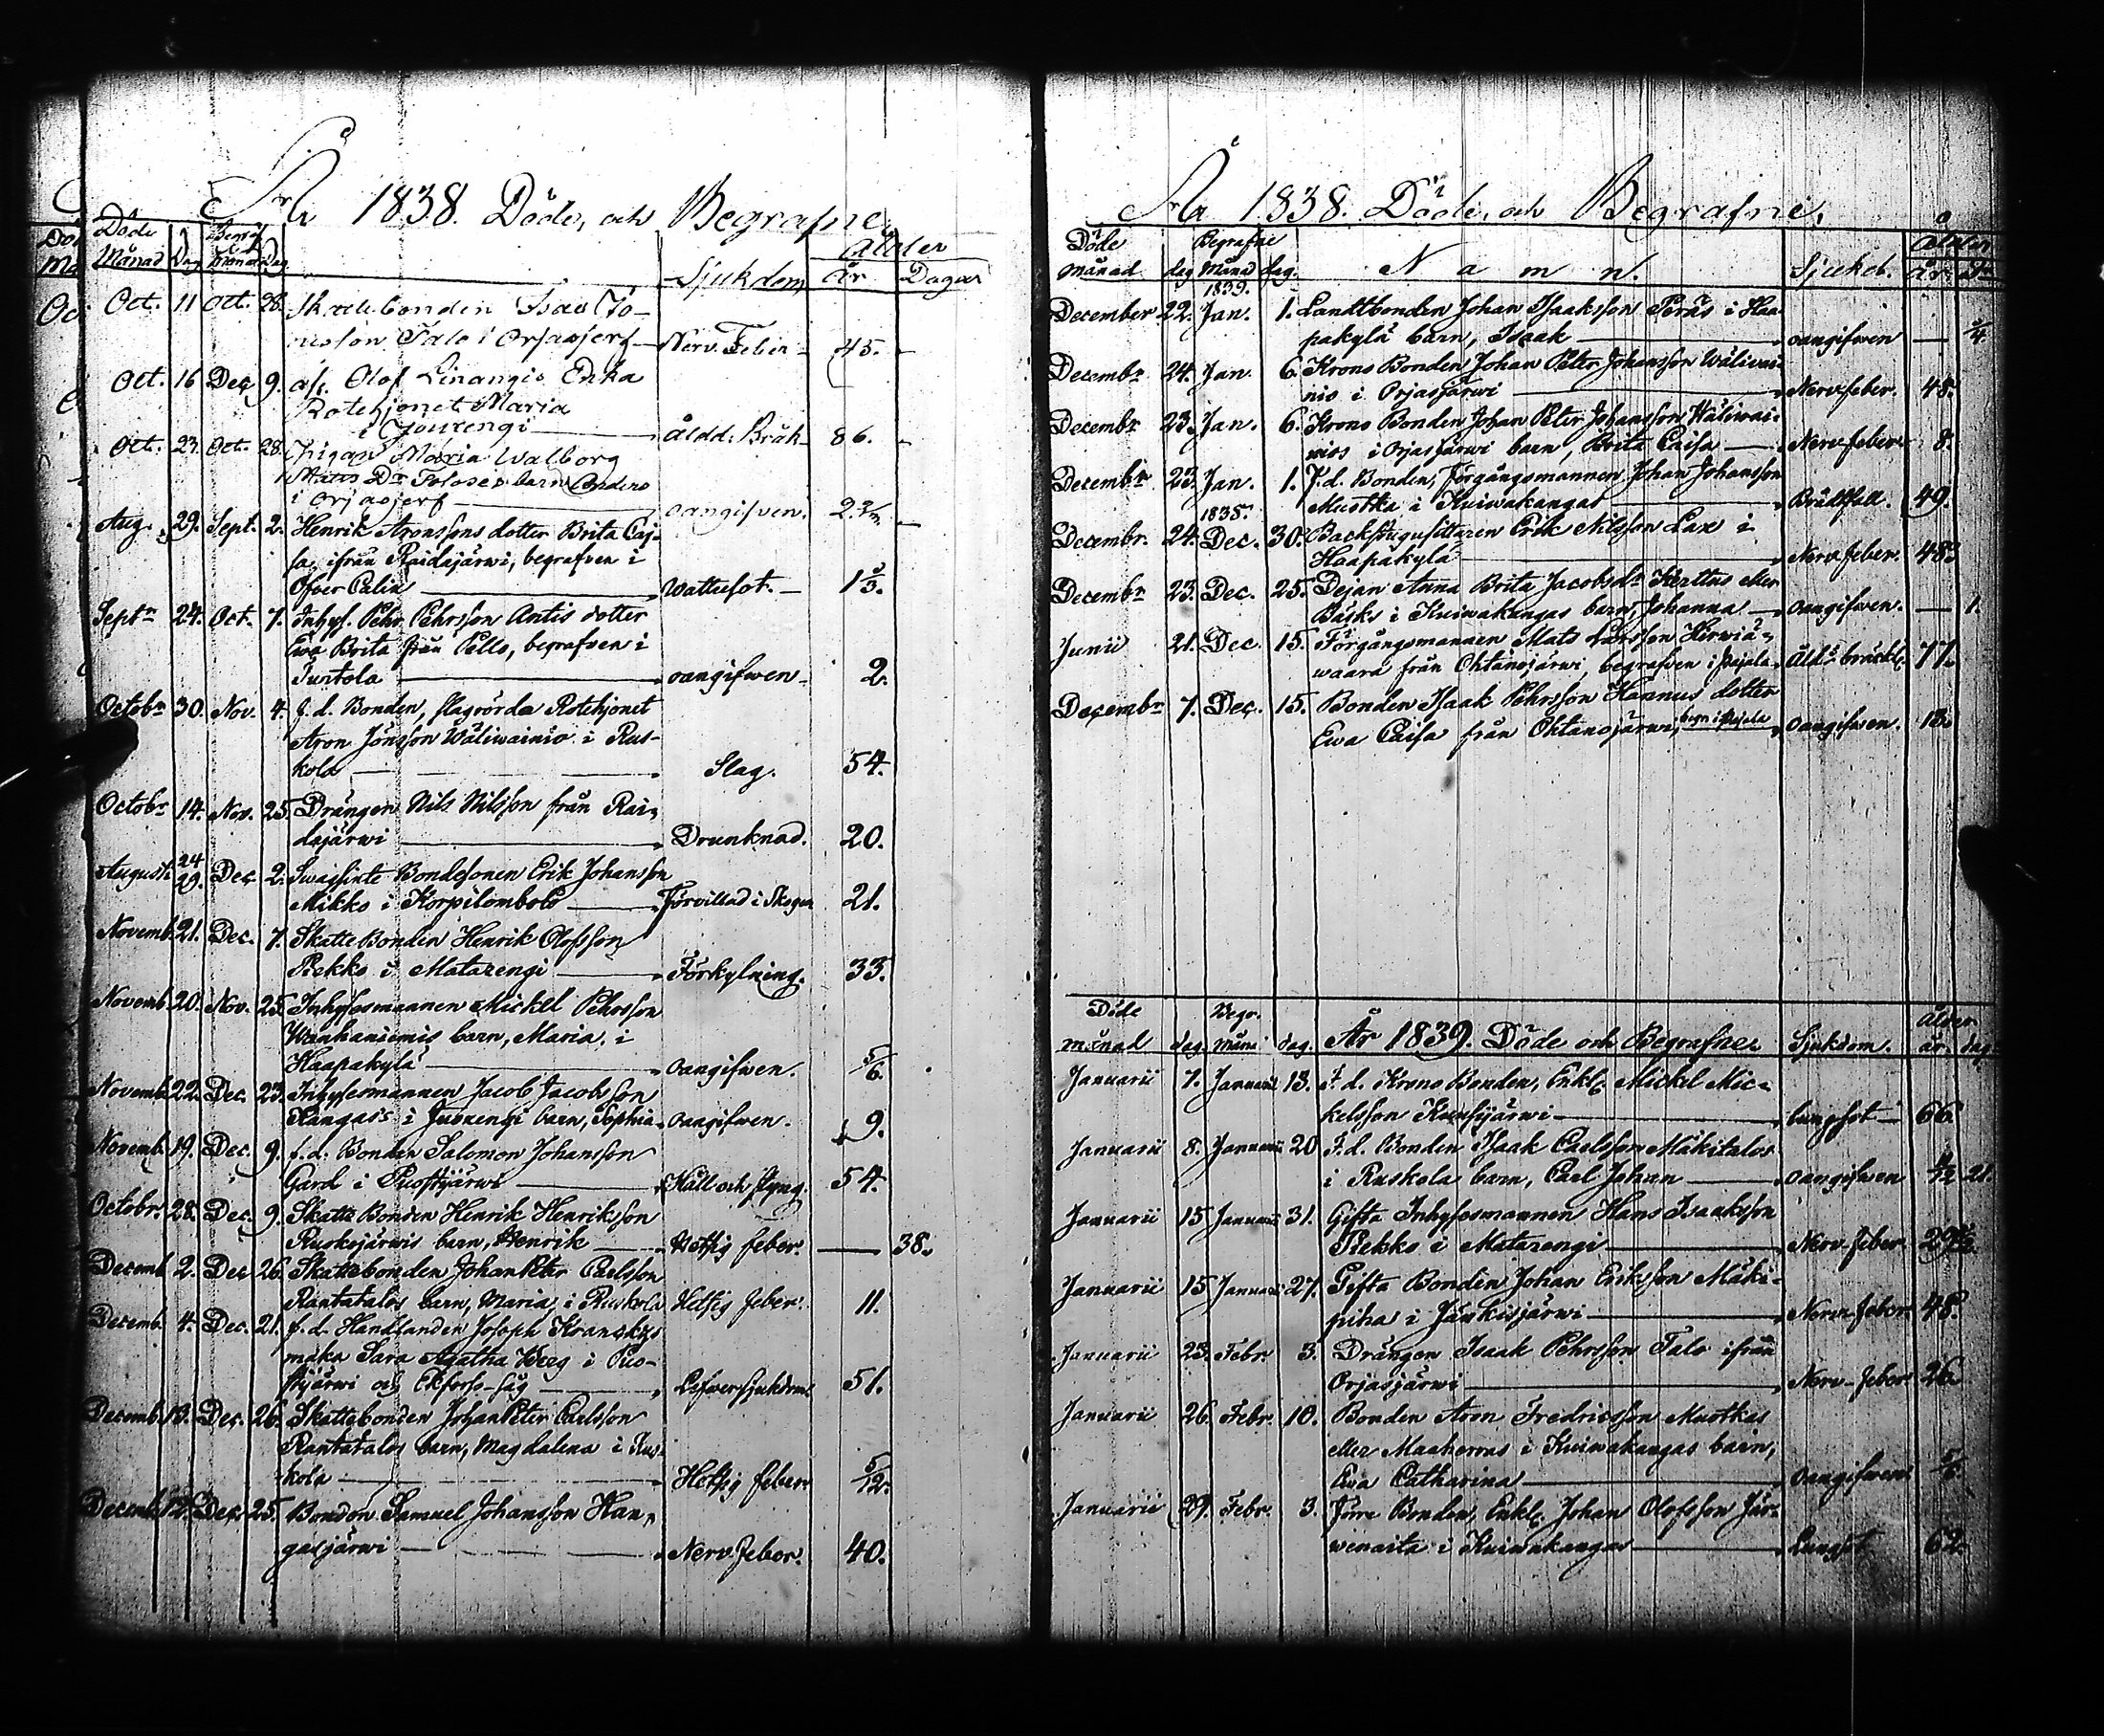 År 1838. Döde, och Begrafne.
Döde Begrafne Ålder
Månad Dag Månad Dag Sjukdom År Dagar
Oct. 11 Oct. 28. Skattebonden Isac Jo-
nisson Talo i Orjasjerf Nerv. Feber 45.
Oct. 16 Dec. 9. afl. Olof Linangis Enka
Rotehjonet Maria
i Jouxengi Åldd. Bräk 86.
Oct. 23. Oct. 28. Pigan Maria Walborg
Mats Dr barn Anders
i Orjasjerf oangifven.
Aug. 29. Sept. 2. Henrik Aronssons dotter Brita Caj-
sa, ifrån Raidajärwi, begrafven i
Öfver Calix Wattusot. 1 2/3.
Septr 24. Oct. 7. Inhys. Pehr Pehrsson Antis dotter
Ewa Brita från Pello, begrafven i
Turtola oangifwen 2.
Octobr 30. Nov. 4. f.d. Bonden, slagrörda Rotehjonet
Aron Jönsson Wäliwainio i Rus-
kola Slag. 54.
Octobr 14. Nov. 25. Drängen Nils Nilsson från Rai-
dajärwi Drunknad. 20.
Augusti 24 29. Dec. 2. Swagsinte Bondesonen Erik Johansson
Mikko i Korpilombolo Förvillad i Skogen 21.
Novemb. 21. Dec. 7. Skatte Bonden Henrik Olofsson
Rekko i Matarengi Förkylning. 33.
Novemb. 20. Nov. 25. Inhysesmannen Mickel Pehrsson
Wanhaniemis barn, Maria, i
Haapakylä oangifwen. 5/6.
Novemb. 22. Dec. 23. Inhysesmannen Jacob Jacobsson
Kangass i Juoxengi barn, Sophia oangifwen. 9.
Novemb. 19. Dec. 9. f.d. Bonden Salomon Johansson
Gard i Puostijärwi Håll och styng. 54.
Octobr. 28. Dec. 9. Skatte Bonden Henrik Henriksson
Ruokojärwis barn, Henrik Hetsig feber. 38.
Decemb. 2. Dec. 26. Skattebonden Johan Peter Carlsson
Rantatalos barn, Maria, i Ruskola Hetsig feber. 11.
Decemb. 4. Dec. 21. f.d. Handlanden Joseph
maka Sara Agatha Berg i Puo-
stijärwi och Ekforss-såg Lefwersjukdom 51.
Decemb. 13. Dec. 26. Skattebonden Johan Peter Carlsson
Rantatalos barn, Magdalena i Rus-
kola Hetsig feber. 5/12.
Decemb. 12. Dec. 25. Bonden Samuel Johansson Han-
gasjärwi Nerv. Feber. 40.
År 1838. Döde, och Begrafne.
Döde Begrafne Ålder
månad dag Månad dag. Namn. Sjukd. År.
1839.
December 22. Jan. 1. Landtbonden Johan Isaaksson Peräs i Haa-
pakylä barn, Isaak oangifwen 3/4.
Decembr 24. Jan. 6. Krono Bonden Johan Peter Johansson Wäliwai-
nio i Orjasjärwi Nerv. feber. 48.
Decembr 23. Jan. 6. Krono Bonden Johan Peter Johansson Wäliwai-
nios i Orjasjärwi barn, Brita Caisa Nerv. feber. 8.
Decembr 23. Jan. 1. F.d. Bonden, Förgångsmannen Johan Johansson
Mustka i Kuiwakangas Bråddöd. 49.
1838.
Decembr. 24. Dec. 30. Backstugusittaren Erik Nilsson Lax i
Haapakylä Nerv. feber. 48.
Decembr 23. Dec. 25. Dejan Anna Brita Jacobsdr Kerttus eller
Bäsks i Kuiwakangas barn, Johanna oangifwen. 1.
Junii 21. Dec. 15. Förgångsmannen Mats Larsson Hirwiä-
waara från Ohtanajärwi, begrafven i Pajala. Ålds bräckl. 77.
Decembr 7. Dec. 15. Bonden Isaak Pehrsson Hannus dotter
Ewa Caisa från Ohtanajärwi, begr. i Pajala oangifwen. 13.
Döde Begr. Ålder
månad dag månad dag. År 1839. Döde och Begrafne Sjukdom. år. dag.
Januarii 7. Januarii 13. F.d. Krono Bonden, Enkl. Mickel Mic-
kelsson Kuusijärwi lungsot 66.
Januarii 8. Januarii 20 F.d. Bonden Isaak Carlsson Mäkitalos
i Ruskola barn, Carl Johan oangifwen 21.
Januarii 15 Januarii 31. Gifta Inhysesmannen Hans Isaaksson
Rekko i Matarengi Nerv. feber
Januarii 15 Januarii 27. Gifta Bonden Johan Eriksson Mäki-
piha i Jänkisjärwi Nerv. feber 48.
Januarii 23. Febr. 3. Drängen Isaak Pehrsson Talo ifrån
Orjasjärwi Nerv. feber 26.
Januarii 26. Febr. 10. Bonden Aron Fredricsson Mustkas
eller Maaherras i Kuiwakangas barn,
Ewa Catharina oangifwen
Januarii 29. Febr. 3. Förre Bonden, Enkl. Johan Olofsson Jär-
wenaita i Kuiwakangas Lungsot 62.